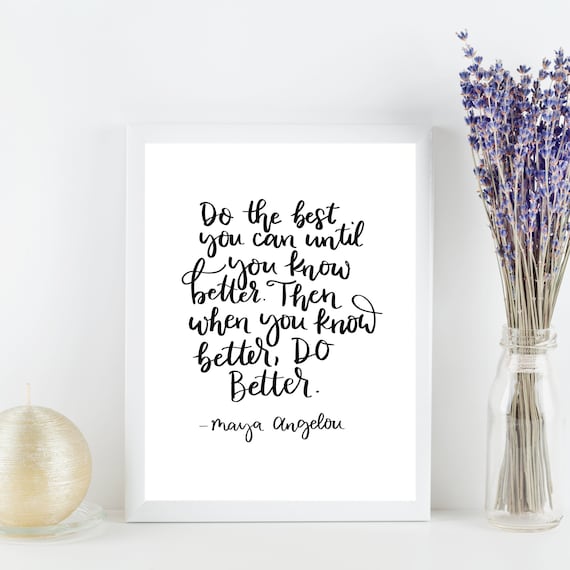 Do the best
you can until
you know
better. Then
when you know
better, DO
Better.
-maya angelou